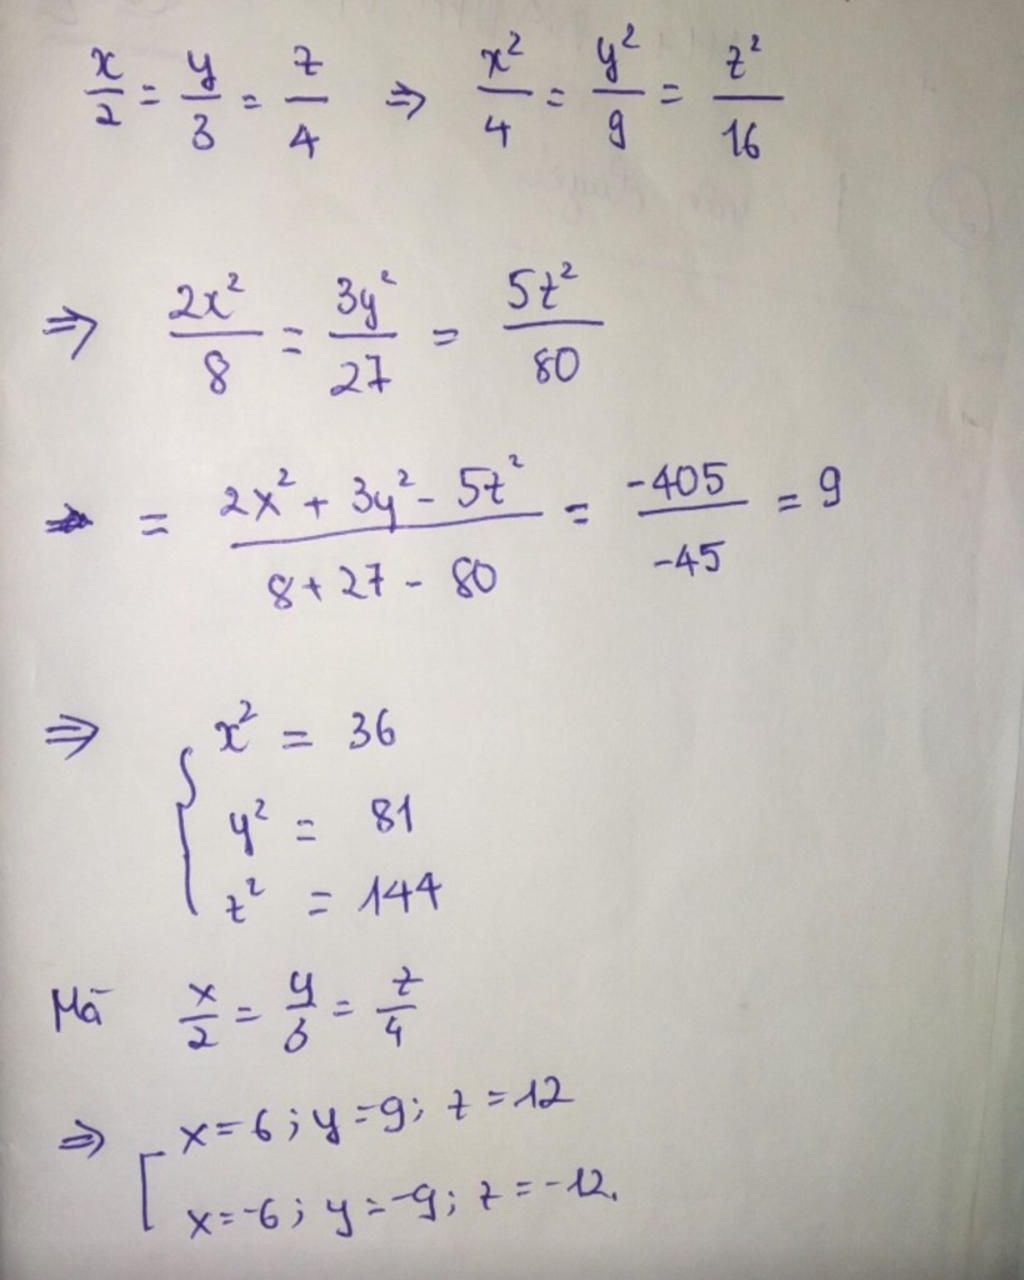 x/2 = y/3 = z/4 ⇒ x²/4 = y²/9 = z²/16
⇒ 2x²/8 = 3y²/27 = 5z²/80
= (2x² + 3y² - 5z²)/(8 + 27 - 80) = -405/-45 = 9
⇒ { x² = 36
y² = 81
z² = 144
Mà x/2 = y/3 = z/4
⇒ [ x = 6; y = 9; z = 12
x = -6; y = -9; z = -12.